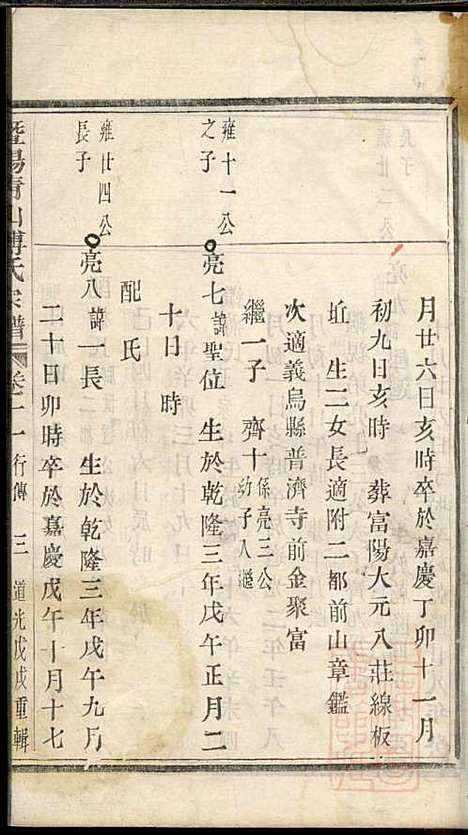 月廿六日亥時卒於嘉慶丁卯十一月
初九日亥時　葬富陽大元入莊線板
坵　生二女長適附二都前山章鑑
次適義烏縣普濟寺前金聚富
繼一子　齊十係亮三公幼子入繼
雍十一公之子
亮七諱聖位　生於乾隆三年戊午正月二
十日　時
配　氏
雍廿四公長子
亮八諱一長　生於乾隆三年戊午九月
二十日卯時卒於嘉慶戊午十月十七
暨陽青山傅氏宗譜　卷二　行傳　三　道光戊戌重輯